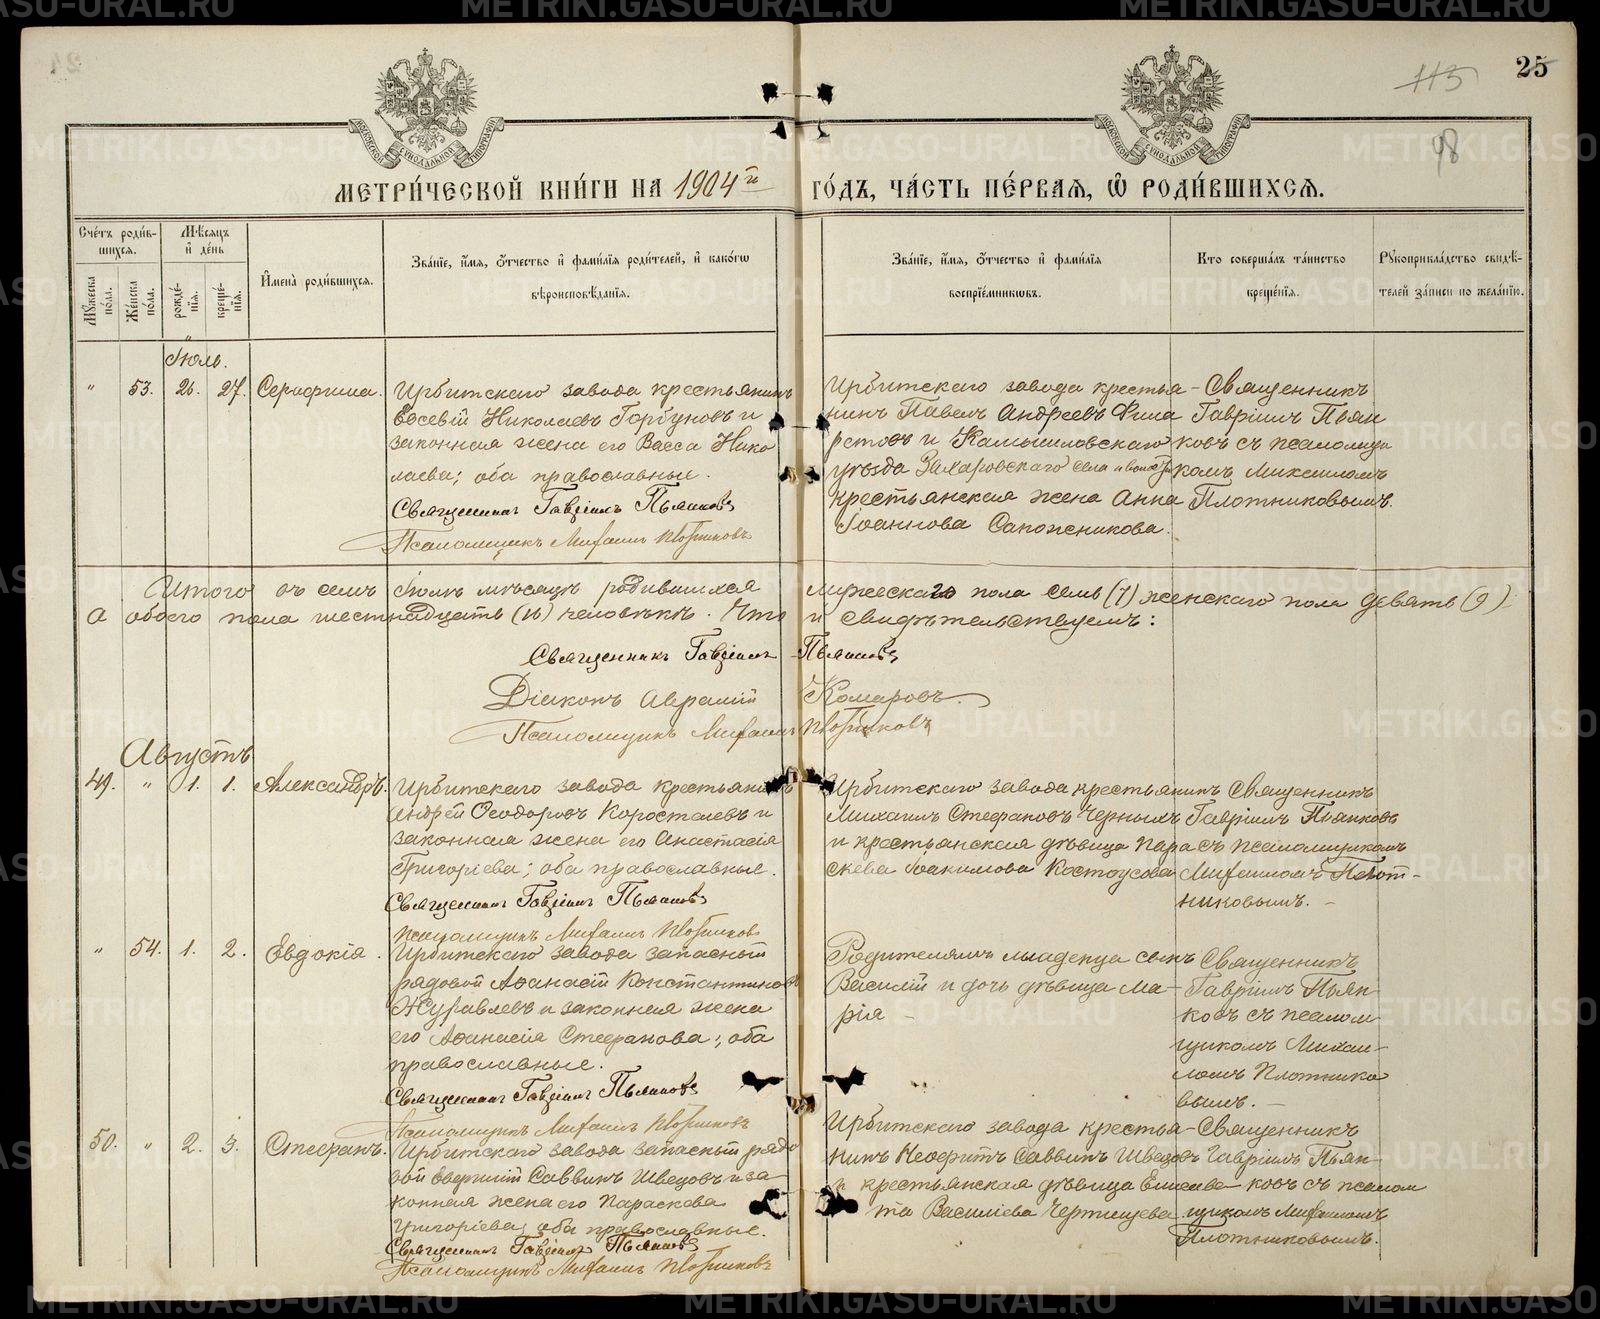 25
115
98
МЕТРИ́ЧЕСКОЙ КНИ́ГИ НА 1904 й ГО́ДЪ, ЧА́СТЬ ПЕ́РВАѦ, Ѿ РОДИ́ВШИХСѦ.
Сче́тъ роди́в-
шихсѧ.
Мѣ́сѧцъ
и҆ де́нь
Мꙋ́жеска
по́ла.
Же́нска
по́ла.
рожде́-
нїѧ.
креще́-
нїѧ.
И҆мена̀ роди́вшихсѧ.
Зва́нїе, и҆́мѧ, ѻ҆́тчество и҆ фами́лїѧ роди́телей, и҆ како́гѡ
вѣроисповѣ́данїѧ.
Зва́нїе, и҆́мѧ, ѻ҆́тчество и҆ фами́лїѧ
воспрїе́мниковъ.
Кто̀ соверша́лъ та́инство
креще́нїѧ.
Рꙋкоприкла́дство свидѣ́-
телей за́писи по жела́нїю.
Іюль.
" 53. 26. 27. Серафима.
Ирбитскаго завода крестьянинъ
Евсевій Николаевъ Горбуновъ и
законная жена его Васса Нико
лаева; оба православные.
Священникъ Гавріилъ Пьянковъ
Псаломщикъ Михаилъ Плотниковъ
Ирбитскаго завода крестья-
нинъ Павелъ Андреевъ Фила
ретовъ и Камышловскаго
уѣзда Захаровскаго села и волости
крестьянская жена Анна
Іоаннова Сапожникова.
Священникъ
Гавріилъ Пьян
ковъ съ псаломщи
комъ Михаиломъ
Плотниковымъ.
Итого въ семъ Іюлѣ мѣсяцѣ родившихся мужескаго пола семь (7) женскаго пола девять (9)
а обоего пола шестнадцать (16) человѣкъ. Что и свидѣтельствуемъ:
Священникъ Гавріилъ Пьянковъ
Діаконъ Аврамій Комаровъ.
Псаломщикъ Михаилъ Плотниковъ
Августъ
49. " 1. 1. Александръ.
Ирбитскаго завода крестьянинъ
Андрей Ѳеодоровъ Коросталевъ и
законная жена его Анастасія
Григоріева; оба православные.
Священникъ Гавріилъ Пьянковъ
Псаломщикъ Михаилъ Плотниковъ
Ирбитскаго завода крестьянинъ
Михаилъ Стефановъ Черныхъ
и крестьянская дѣвица Пара
скева Іоакимова Костоусова
Священникъ
Гавріилъ Пьянковъ
съ псаломщикомъ
Михаиломъ Плот-
никовымъ. -
" 54. 1. 2. Евдокія.
Ирбитскаго завода запасный
рядовой Аѳанасій Константиновъ
Журавлевъ и законная жена
его Аѳанасія Стефанова; оба
православные.
Священникъ Гавріилъ Пьянковъ
Псаломщикъ Михаилъ Плотниковъ
Родителямъ младенца сынъ
Василій и дочь дѣвица Ма-
рія -
Священникъ
Гавріилъ Пьян-
ковъ съ псалом
щикомъ Михаи-
ломъ Плотнико
вымъ. -
50. " 2. 3. Стефанъ.
Ирбитскаго завода запасный рядо
вой Евергній Саввинъ Швецовъ и за
конная жена его Параскева
Григоріева; оба православные.
Священникъ Гавріилъ Пьянковъ
Псаломщикъ Михаилъ Плотниковъ
Ирбитскаго завода крестья-
нинъ Неофитъ Саввинъ Швецовъ
и крестьянская дѣвица Елисаве-
та Василіева Чертищева
Священникъ
Гавріилъ Пьян-
ковъ съ псалом
щикомъ Михаиломъ
Плотниковымъ.
METRIKI.GASO-URAL.RU